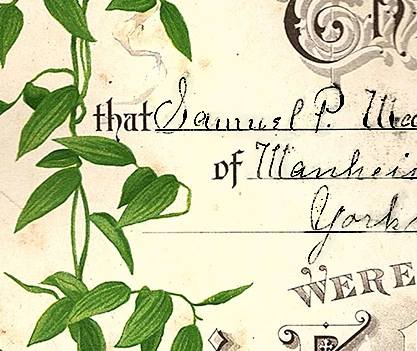 that Samuel P.
of Manhei
York
WERE